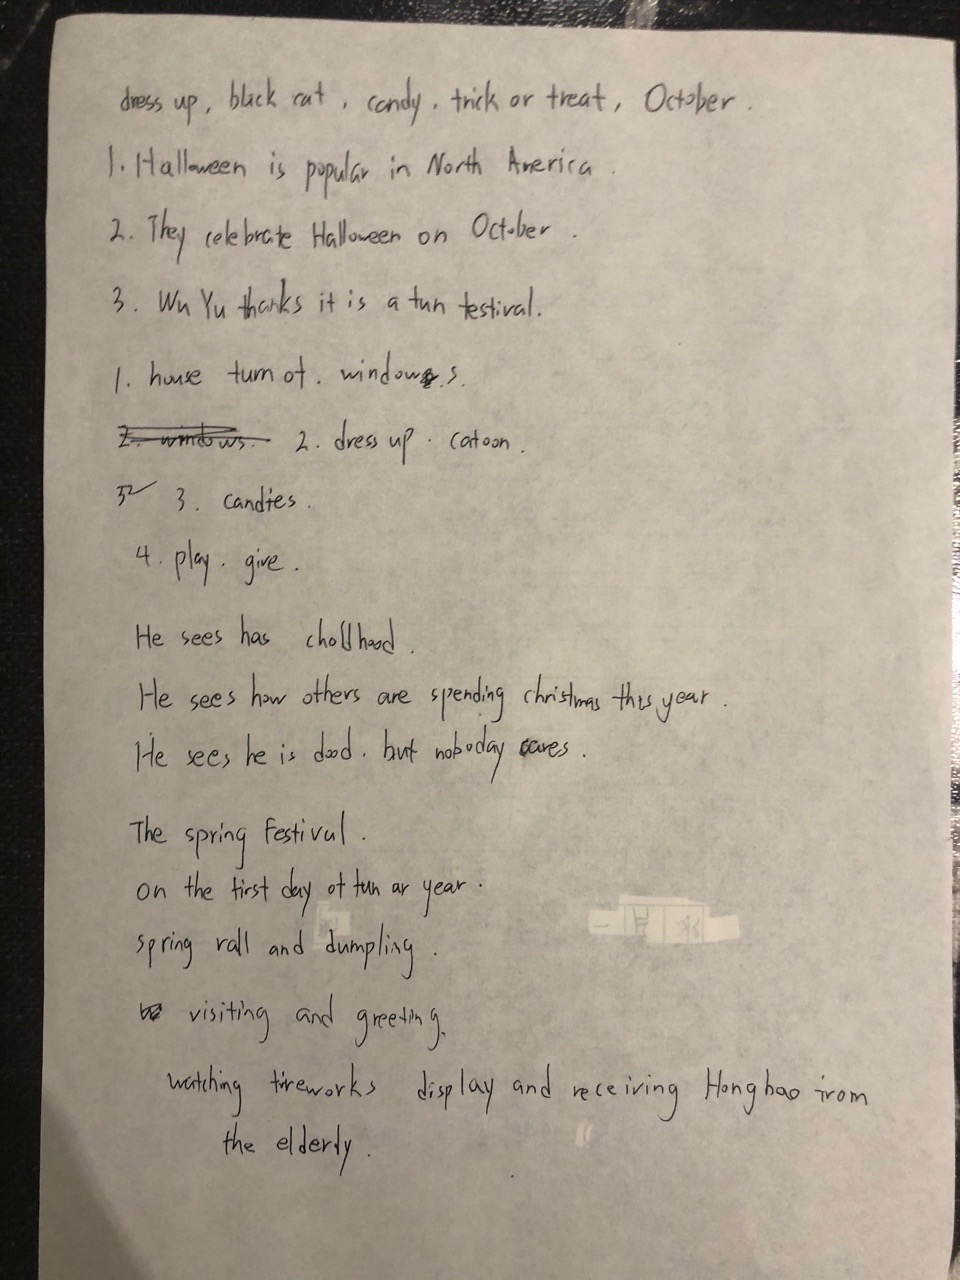 dress up, black cat, candy, trick or treat, October.
1. Halloween is popular in North America.
2. They celebrate Halloween on October.
3. Wu Yu thanks it is a fun festival.
1. house turn of. windows.
2. windows. 2. dress up. catoon.
3. candies.
4. play. give.
He sees has choldhood.
He sees how others are spending christmas this year.
He sees he is dood. but noboday cares.
The spring Festival.
on the first day of tun ar year.
spring rall and dumpling.
visiting and greeting.
watching fireworks display and receiving Hongbao from
the elderly.